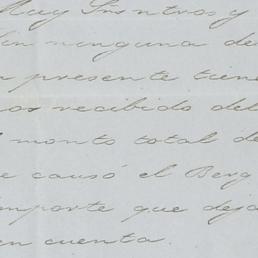 Muy Sres ntros y
Sin ninguna de
presente tiene
recibido del
monto total de
causó el Berg
importe que deja
en cuenta.